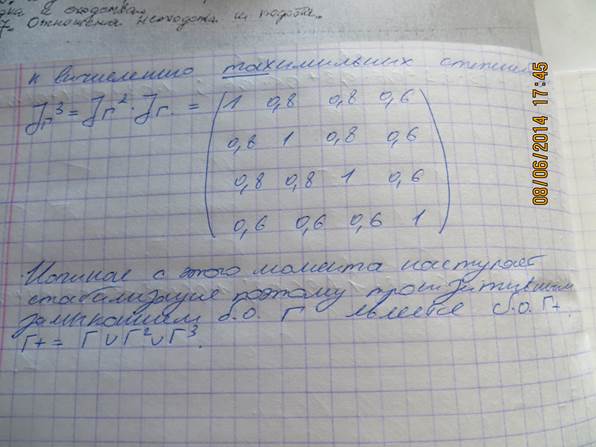 7. Отношения несходства и
к вычислению максимильных степеней
Jг³ = Jг² · Jг. = 1 0,8 0,8 0,6
0,8 1 0,8 0,6
0,8 0,8 1 0,6
0,6 0,6 0,6 1
Начиная с этого момента наступает
стабилизация поэтому транзитивным
замыканием б.о. Г является б.о. Г+.
Г+ = Г∪Г²∪Г³.
08/06/2014 17:45